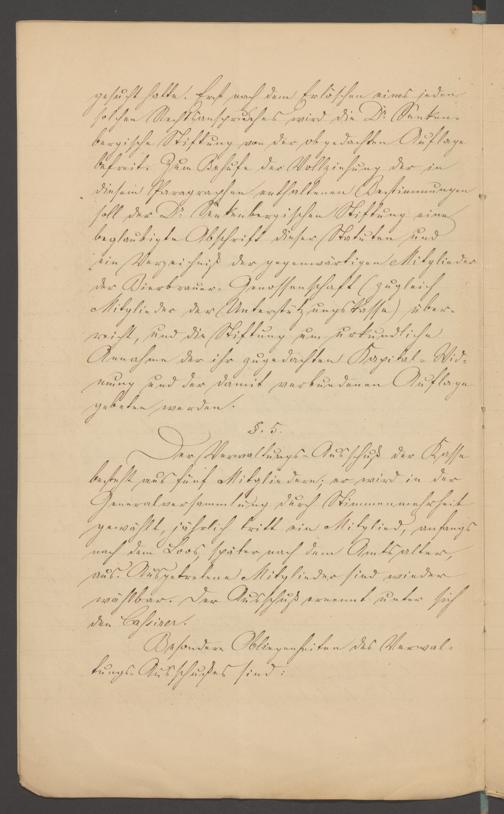 gesucht hatte. Erst nach dem Erlöschen eines jeden
solchen Rechtsanspruches wird die Dr. Senken-
bergische Stiftung von der obgedachten Auflage
befreit. Zum Behufe der Vollziehung der in
diesem Paragraphen enthaltenen Bestimmungen
soll der Dr. Senkenbergischen Stiftung eine
beglaubigte Abschrift dieser Statuten und
ein Verzeichniß der gegenwärtigen Mitglieder
der Bierbrauer-Genossenschaft (zugleich
Mitglieder der Unterstützungskasse) über-
reicht, und die Stiftung um urkundliche
Annahme der ihr zugedachten Kapital-Wid-
mung und der damit verbundenen Auflage
gebeten werden.
§. 5.
Der Verwaltungs-Ausschuß der Kasse
besteht aus fünf Mitgliedern, er wird in der
Generalversammlung durch Stimmenmehrheit
gewählt, jährlich tritt ein Mitglied, anfangs
nach dem Loos, später nach dem Amtsalter,
aus. Ausgetretene Mitglieder sind wieder
wählbar. Der Ausschuß ernennt unter sich
den Cassirer.
Besondere Obliegenheiten des Verwal-
tungs-Ausschußes sind: